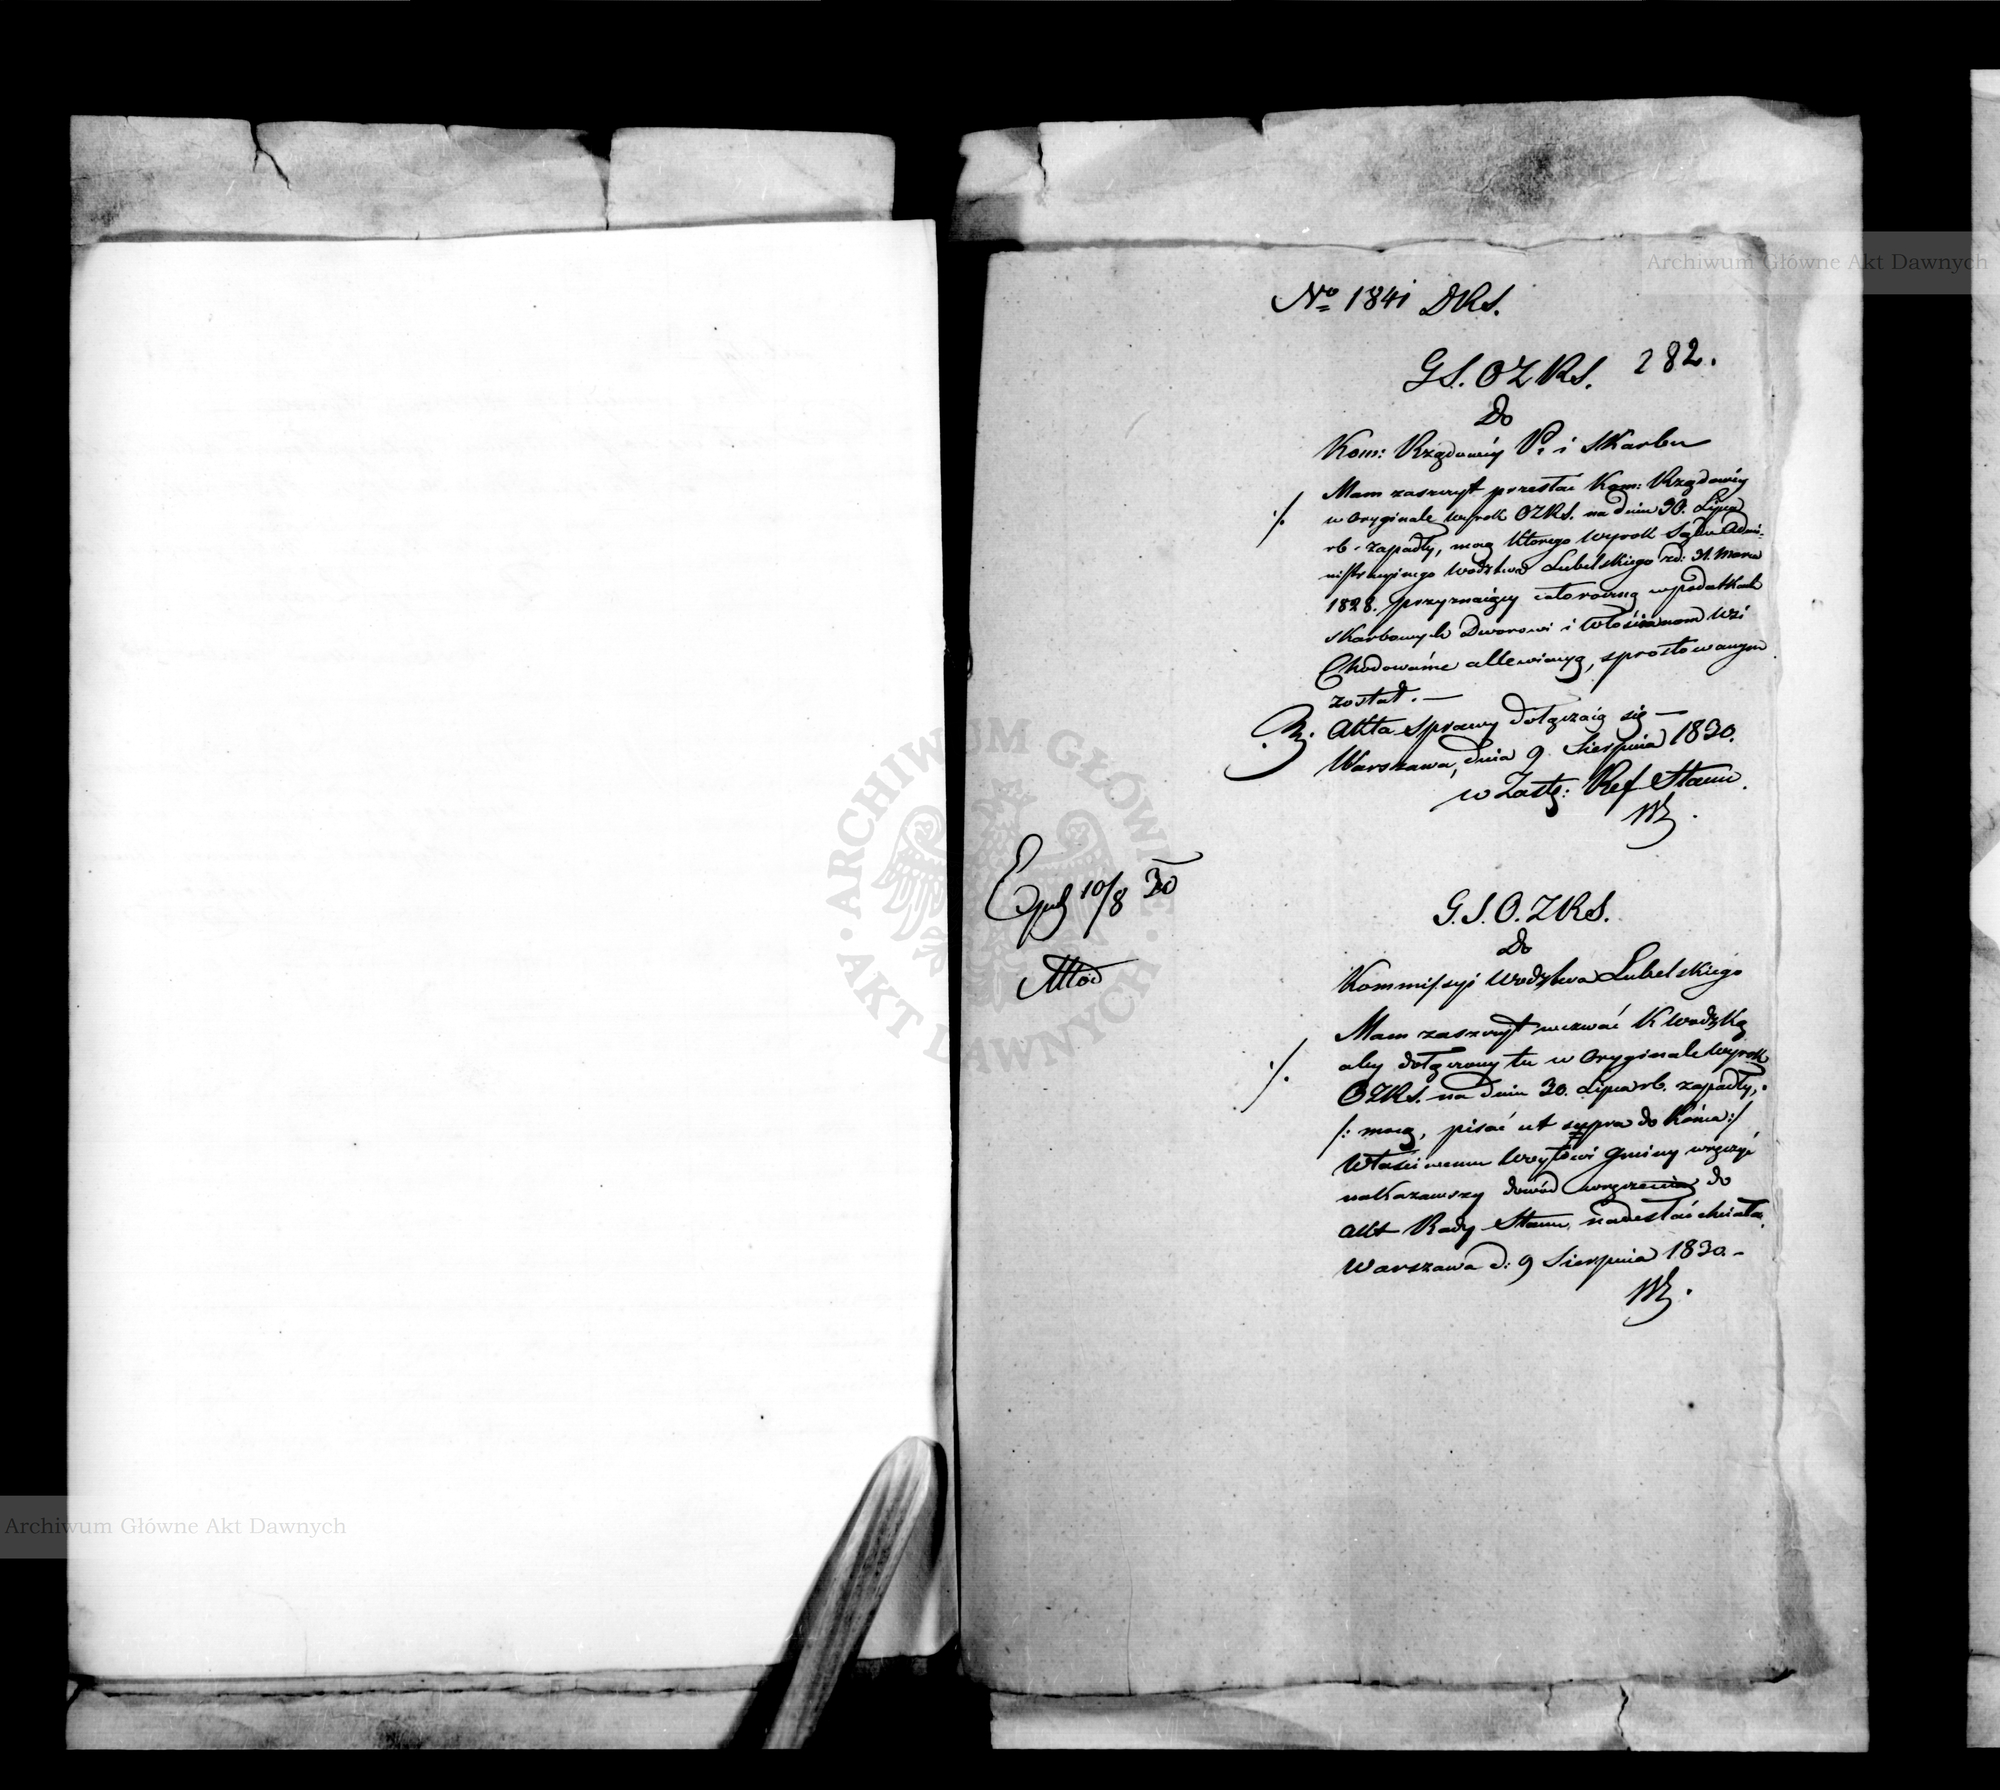 Archiwum Główne Akt Dawnych
No 1841 DRS.
282.
G S. O Z RS.
Do
Kom: Rządowéy P. i Skarbu
Mam zaszczyt przesłać Kom: Rządowéy
w Oryginale wyrok OZRS. na dniu 30. Lipca
rb. zapadły, mocą którego wyrok Sądu Admi-
nistracyinego Wodztwa Lubelskiego zd: 31. Marca
1828. przyznaiący całoroczną w podatkach
Skarbowych Dworowi i Włościanom Wsi
Chodowańce allewiacyą, sprostowanym
został. —
Akta sprawy dołączaią się —
Warszawa, dnia 9 Sierpnia 1830.
w Zastę: Ref Stanu.
Exp 10/8 30
G. S. O. Z RS.
Do
Kommissyi Wodztwa Lubelskiego
Mam zaszczyt wezwać K Wodzką
aby dołączony tu w Oryginale wyrok
OZRS. na dniu 30. Lipca rb. zapadły,
/: mocą, pisać ut supra do końca :/
Właściwemu Woytowi Gminy wręczyć
nakazawszy dowód wręczenia do
Akt Rady Stanu, nadesłać chciała.
Warszawa d: 9 Sierpnia 1830. –
ARCHIWUM GŁÓWNE
AKT DAWNYCH
Archiwum Główne Akt Dawnych